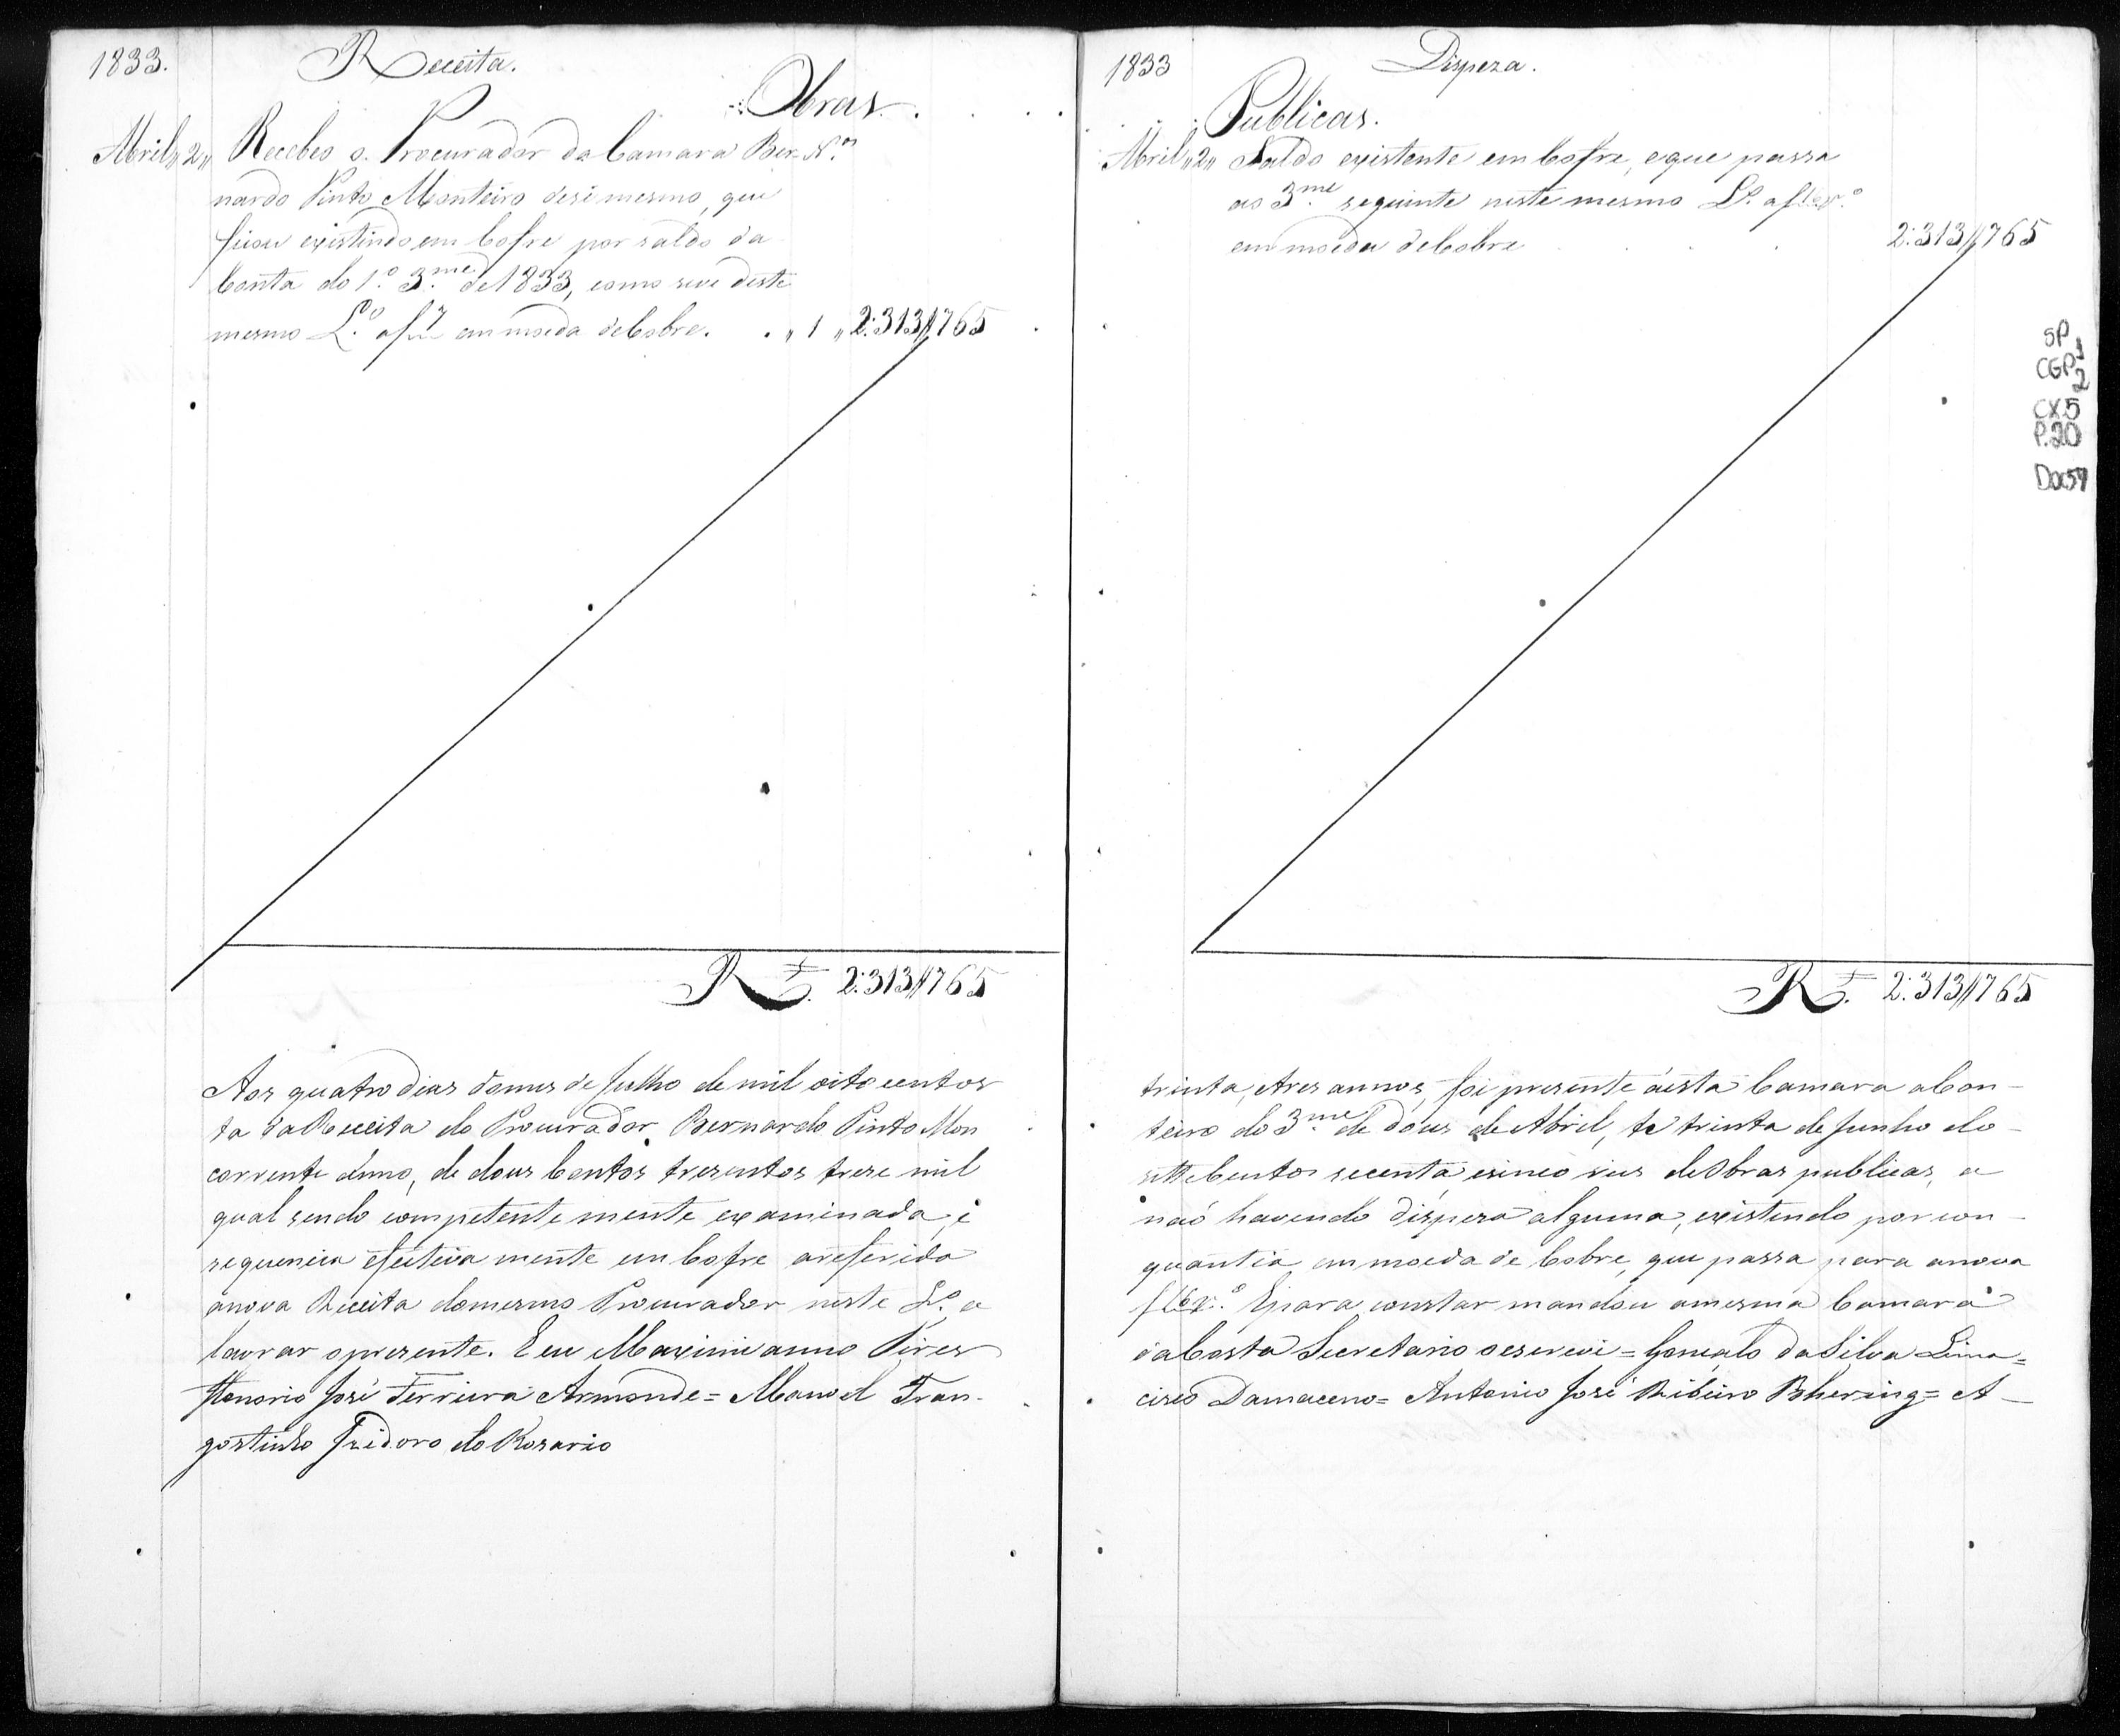 1833. Receita.
Obras.
Abril,,2,, Recebeo o Procurador da Camara Ber- N.os
nardo Pinto Monteiro desi mesmo, que
ficou existindo em Cofre por saldo da
Conta do 1.º 3.me de 1833, como seve deste
mesmo L.º a f em moeda deCobre. . ,, 1 ,, 2:313//765
R.s 2:313//765
Aos quatro dias domes de Julho de mil oito centos
ta da Receita do Procurador Bernardo Pinto Mon
corrente anno, de dous Contos tresentos trese mil
qual sendo competente mente examinada, e
sequencia efectiva mente em Cofre areferida
anova Receita domesmo Procurador neste L.º a
lavrar opresente. Eeu Maximianno Pires
Honorio José Ferreira Armonde = Manoel Fran-
gostinho Izidoro do Rosario
1833 Dispeza.
Publicas.
Abril,,2,, Saldo existente em Cofre, eque passa
ao 3.me seguinte neste mesmo L.º a f
em moeda deCobre 2:313//765
R.s 2:313//765
trinta, etres annos, foi presente áesta Camara aCon-
teiro do 3.me de dous de Abril, te trinta de Junho do
sette Centos secenta, ecinco reis deObras publicas, a
naõ havendo dispeza alguma, existindo por con-
quantia em moeda de Cobre, que passa para anova
f Epara constar mandou amesma Camara
daCosta Secretario oescrevi = Gonçalo daSilva Lima =
cisco Damaceno = Antonio José Ribeiro Bhering = A
SP
CGP 1
2
CX.5
P.20
Doc59